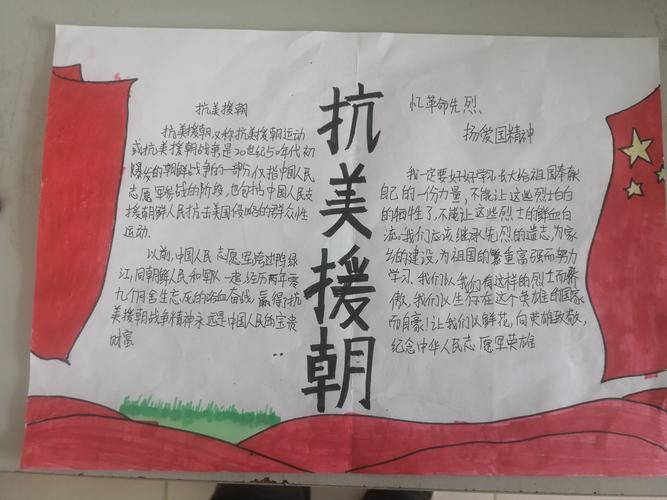 抗美援朝
抗美援朝又称抗美援朝运动
或抗美援朝战争是20世纪50年代初
爆发的朝鲜战争的一部分仅指中国人民
志愿军参战的阶段,也包括中国人民支
援朝鲜人民抗击美国侵略的群众性
运动.
以前,中国人民志愿军跨过鸭绿
江,同朝鲜人民和军队一起,经历两年零
九个月舍生忘死的浴血奋战,赢得了抗
美援朝战争精神永远是中国人民的宝贵
财富
抗美援朝
忆革命先烈.
扬爱国精神
我一定要好好学习,长大给祖国奉献
自己的一份力量,不能让这些烈士白白
的牺牲了,不能让这些烈士的鲜血白
流.我们应该继承先烈的遗志,为家
乡的建设,为祖国的繁重富强而努力
学习.我们以我们有这样的烈士而骄
傲,我们以生存在这个英雄的国家
而自豪!让我们以鲜花,向英雄致敬,
纪念中华人民志愿军英雄